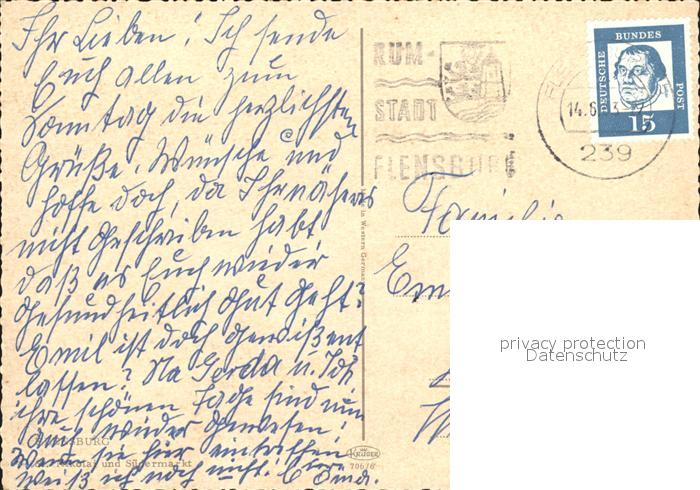 Ihr Lieben! Ich sende
Euch allen zum
Sonntag die herzlichsten
Grüße, Wünsche und
hoffe doch, da Ihr näheres
nicht geschrieben habt
daß es Euch wieder
Gesundheitlich Gut Geht?
Emil ist doch gewiß ent
lassen? Na Gerda u. Ich
ihre schönen Tage sind nun
auch wieder gewesen!
Wenn sie hier eintreffen
weiß ich noch nicht! Oma.
RUM-
STADT
FLENSBURG
DEUTSCHE BUNDES POST
15
14.6.
239
Familie
in Western Germany
KRÜGER
706/6
FLENSBURG
Nikolai und Südermarkt
privacy protection
Datenschutz